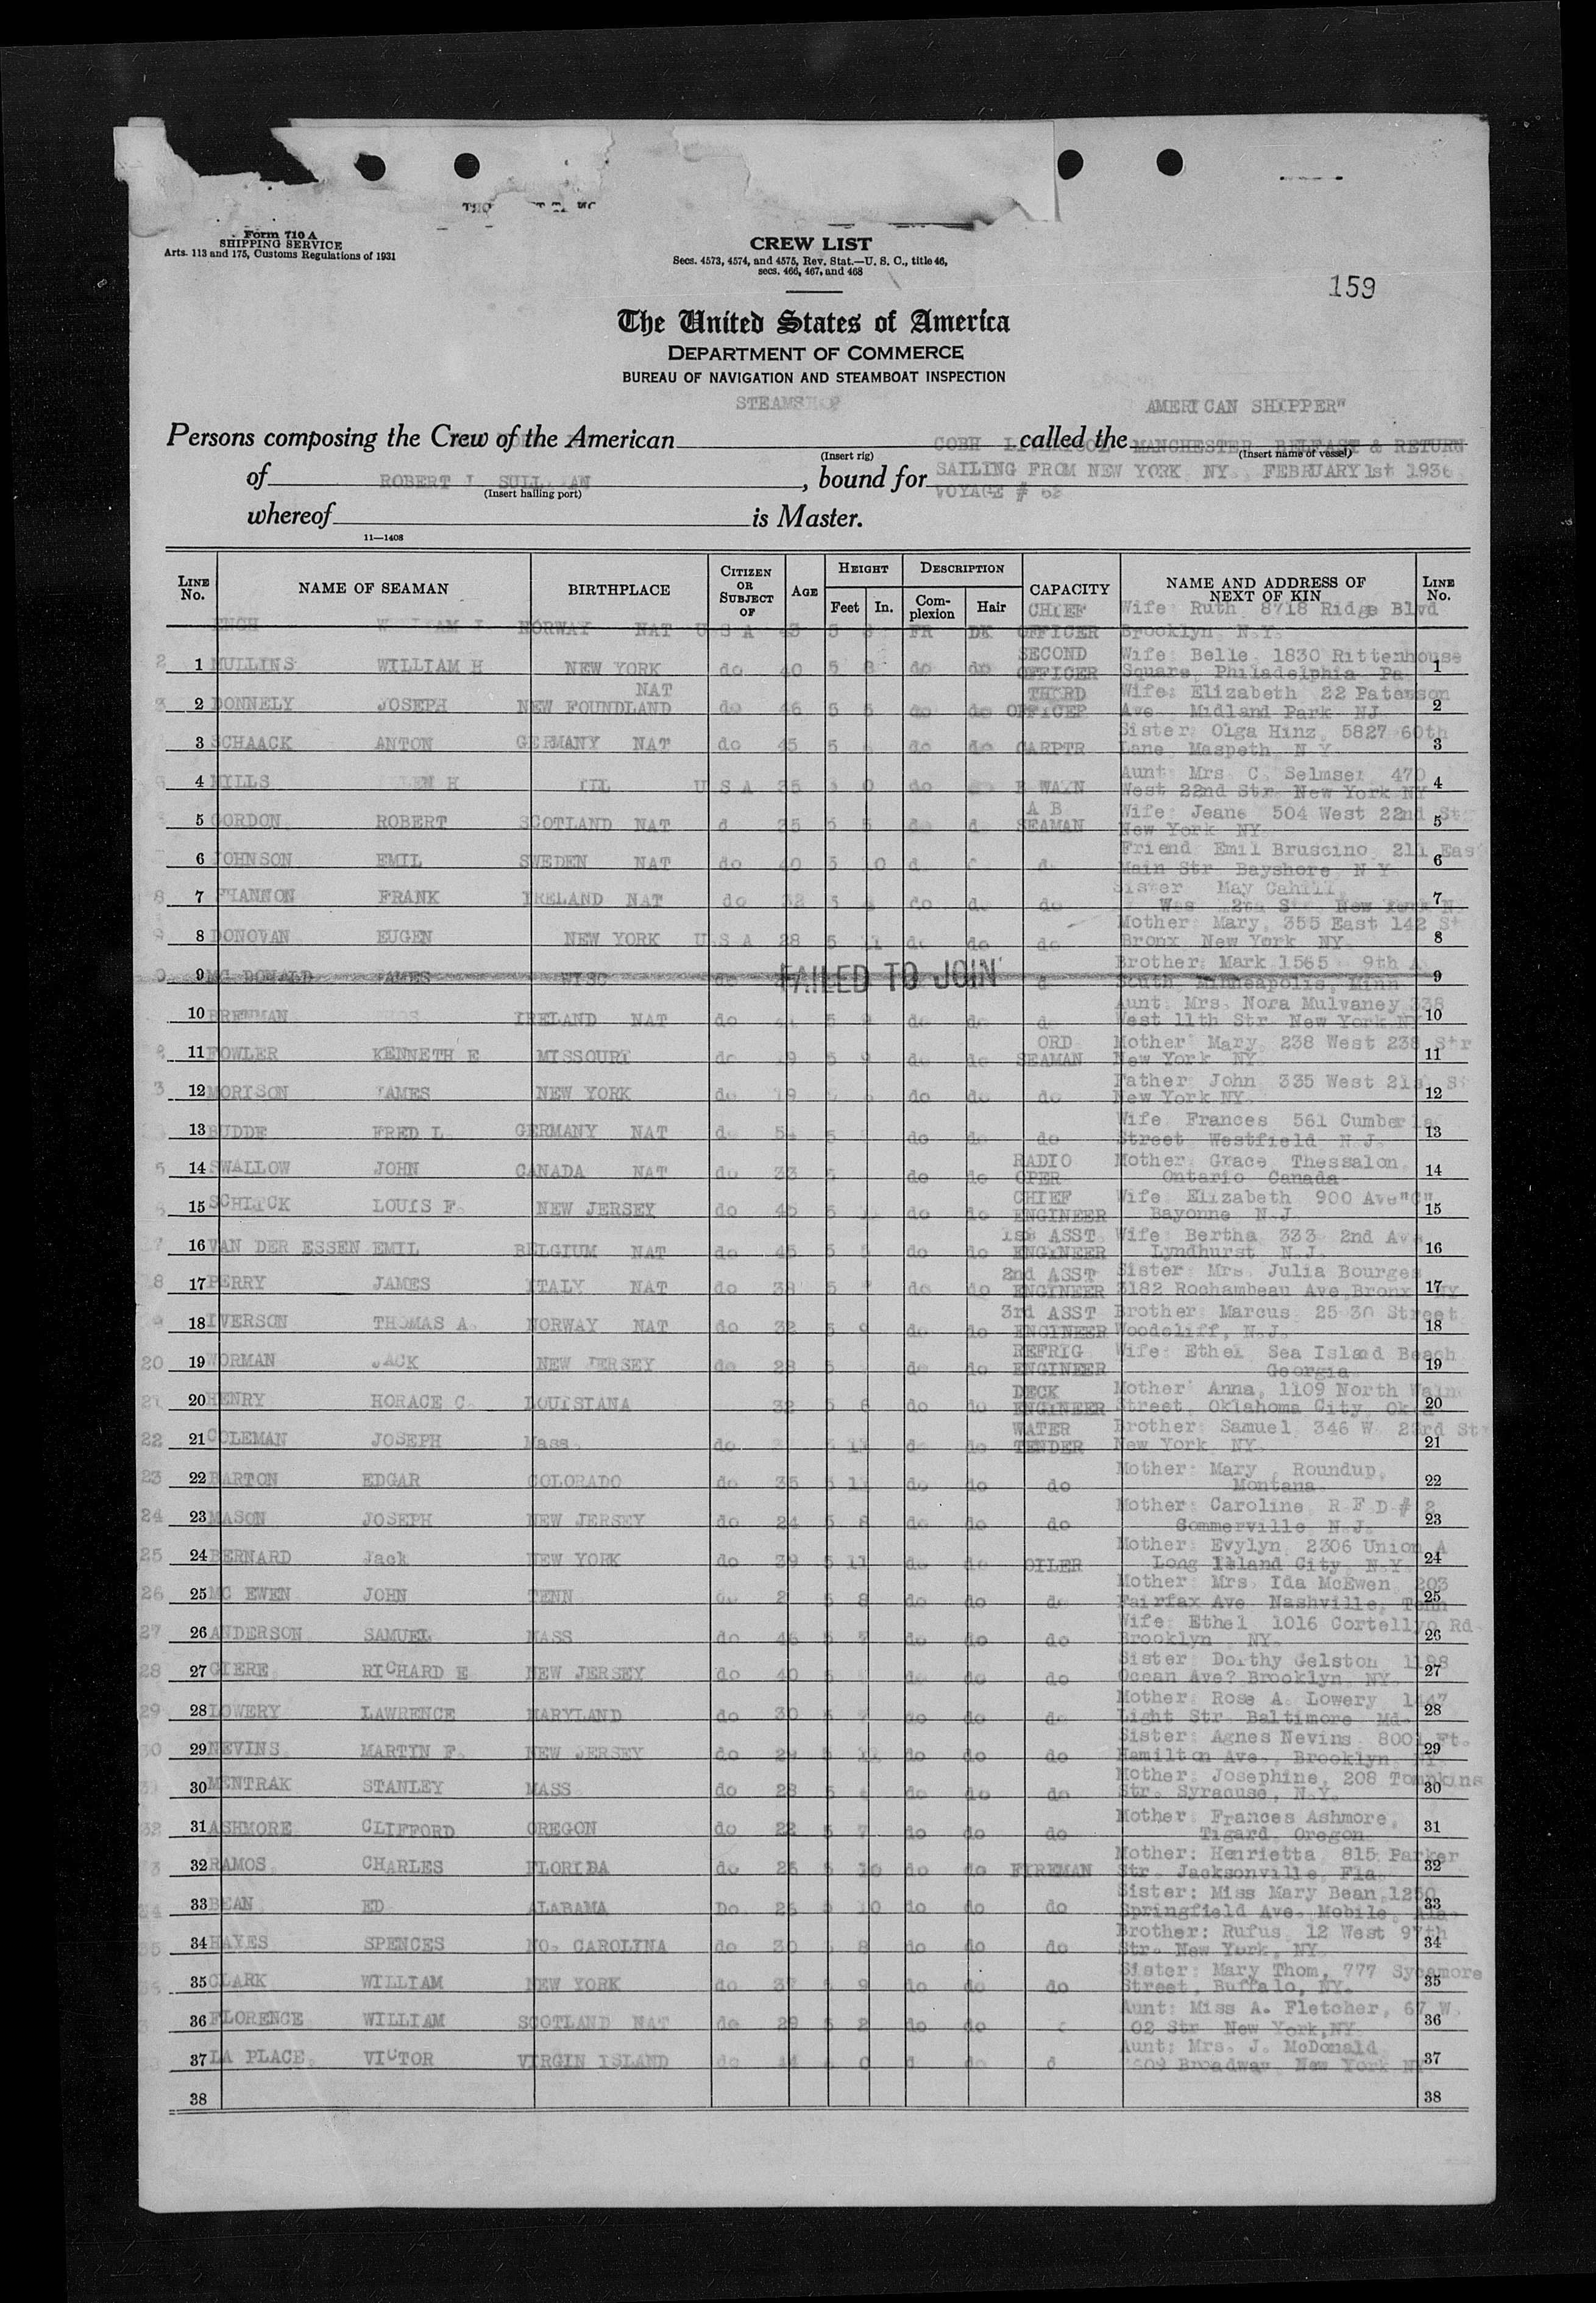 Form 710 A
SHIPPING SERVICE
Arts. 113 and 175, Customs Regulations of 1931
CREW LIST
Secs. 4573, 4574, and 4575, Rev. Stat.—U. S. C., title 46,
secs. 466, 467, and 468
159
The United States of America
DEPARTMENT OF COMMERCE
BUREAU OF NAVIGATION AND STEAMBOAT INSPECTION
STEAMSHIP AMERICAN SHIPPER"
Persons composing the Crew of the American called the
(Insert rig) (Insert name of vessel)
COBH LIVERPOOL MANCHESTER BELFAST & RETURN
of ROBERT J. SULLIVAN , bound for SAILING FROM NEW YORK NY., FEBRUARY 1st 1936
(Insert hailing port) VOYAGE #
whereof is Master.
11—1408
LINE No. NAME OF SEAMAN BIRTHPLACE CITIZEN OR SUBJECT OF AGE HEIGHT Feet In. DESCRIPTION Complexion Hair CAPACITY NAME AND ADDRESS OF NEXT OF KIN LINE No.
NORWAY NAT U S A 5 FR DK CHIEF OFFICER Wife: Ruth 8718 Ridge Blvd Brooklyn N.Y.
2 1 MULLINS WILLIAM H NEW YORK do 40 5 8 do do SECOND OFFICER Wife: Belle 1830 Rittenhouse Square, Philadelphia Pa. 1
3 2 DONNELY JOSEPH NEW FOUNDLAND NAT do 46 5 5 do do THIRD OFFICER Wife: Elizabeth 22 Paterson Ave. Midland Park NJ 2
3 SCHAACK ANTON GERMANY NAT do 45 5 do do CARPTR Sister: Olga Hinz, 5827 60th Lane, Maspeth N Y 3
4 MILLS H ILL U S A 35 do Aunt: Mrs C. Selmser 470 West 22nd Str. New York NY 4
5 GORDON ROBERT SCOTLAND NAT 35 5 5 A B SEAMAN Wife: Jeane 504 West 22nd St New York NY 5
6 JOHNSON EMIL SWEDEN NAT do 40 5 10 Friend Emil Bruscino 211 East Main Str. Bayshore N Y 6
8 7 SHANNON FRANK IRELAND NAT do 32 5 do do do Sister May Cahill New York N. 7
9 8 DONOVAN EUGEN NEW YORK U S A 28 5 11 do do do Mother: Mary, 355 East 142 St Bronx New York NY. 8
9 MC DONALD JAMES WISC do FAILED TO JOIN Brother: Mark 1565 9th A South, Minneapolis, Minn 9
10 BRENNAN THOS IRELAND NAT do 5 9 do do do Aunt: Mrs. Nora Mulvaney 338 West 11th Str. New York NY 10
11 FOWLER KENNETH E MISSOURI do 19 5 9 do do ORD SEAMAN Mother: Mary, 238 West 238 Str New York NY. 11
12 MORISON JAMES NEW YORK do 19 do do do Father: John 335 West 21st St New York NY. 12
13 BUDDE FRED L. GERMANY NAT do 54 5 do do do Wife Frances 561 Street Westfield N.J. 13
14 SWALLOW JOHN CANADA NAT do 33 5 do do RADIO OPER Mother: Grace, Thessalon, Ontario Canada 14
15 SCHLICK LOUIS F. NEW JERSEY do 45 5 do do CHIEF ENGINEER Wife Elizabeth 900 Ave"C" Bayonne N.J. 15
16 VAN DER ESSEN EMIL BELGIUM NAT do 45 5 5 do do 1st ASST ENGINEER Wife: Bertha 333 2nd Ave Lyndhurst N.J. 16
17 PERRY JAMES ITALY NAT do 38 5 do do 2nd ASST ENGINEER Sister: Mrs. Julia Bourges 3182 Rochambeau Ave.Bronx NY 17
18 IVERSON THOMAS A. NORWAY NAT do 32 5 9 do do 3rd ASST ENGINEER Brother: Marcus 25 30 Street Woodcliff, N.J. 18
20 19 WORMAN JACK NEW JERSEY do 28 5 do do REFRIG ENGINEER Wife: Ethel Sea Island Beach Georgia 19
21 20 HENRY HORACE C. LOUISIANA 32 5 6 do do DECK ENGINEER Mother: Anna, 1109 North Street, Oklahoma City, Okla 20
22 21 COLEMAN JOSEPH Mass. do 11 do do WATER TENDER Brother: Samuel 346 W. 23rd St New York NY. 21
23 22 BARTON EDGAR COLORADO do 35 5 11 do do do Mother: Mary, Roundup, Montana 22
24 23 MASON JOSEPH NEW JERSEY do 24 5 8 do do do Mother: Caroline R F D # 2 Sommerville N.J. 23
25 24 BERNARD Jack NEW YORK do 39 5 11 do do OILER Mother: Evylyn, 2306 Union A Long Island City, N.Y. 24
26 25 MC EWEN JOHN TENN do 5 8 do do do Mother: Mrs. Ida McEwen, 203 Fairfax Ave Nashville, Tenn 25
27 26 ANDERSON SAMUEL MASS do 46 5 7 do do do Wife: Ethel 1016 Cortellyo Rd. Brooklyn NY. 26
28 27 GIERE RICHARD E NEW JERSEY do 40 5 do do do Sister: Dorthy Gelston 1198 Ocean Ave? Brooklyn NY. 27
29 28 LOWERY LAWRENCE MARYLAND do 30 5 7 do do do Mother: Rose A. Lowery 1447 Light Str. Baltimore Md. 28
30 29 NEVINS MARTIN F. NEW JERSEY do 29 5 11 do do do Sister: Agnes Nevins 8001 Ft. Hamilton Ave., Brooklyn NY. 29
31 30 MENTRAK STANLEY MASS do 28 5 do do do Mother: Josephine, 208 Tompkins Str. Syracuse, N.Y. 30
32 31 ASHMORE CLIFFORD OREGON do 22 5 7 do do do Mother: Frances Ashmore, Tigard, Oregon 31
32 RAMOS CHARLES FLORIDA do 25 5 10 do do FIREMAN Mother: Henrietta 815 Parker Str. Jacksonville, Fla. 32
34 33 BEAN ED ALABAMA Do 25 5 10 do do do Sister: Miss Mary Bean, 1250 Springfield Ave. Mobile, Ala 33
35 34 HAYES SPENCES NO. CAROLINA do 30 5 8 do do do Brother: Rufus, 12 West 97th Str. New York, NY. 34
35 CLARK WILLIAM NEW YORK do 37 5 9 do do do Sister: Mary Thom, 777 Sycamore Street, Buffalo, NY. 35
36 FLORENCE WILLIAM SCOTLAND NAT do 29 5 2 do do Aunt: Miss A. Fletcher, 67 W. 02 Str New York,NY. 36
37 LA PLACE VICTOR VIRGIN ISLAND do 44 Aunt: Mrs. J. McDonald Broadway, New York NY 37
38 38